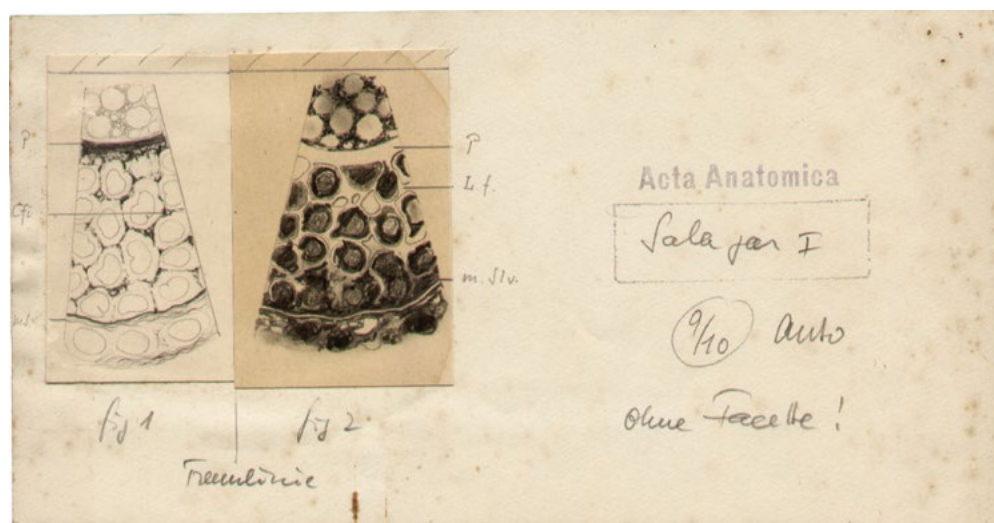 P
Cfi
P
L f.
m. Slv.
fig 1
fig 2
Trennlinie
Acta Anatomica
Salazar I
9/10 Auto
ohne Facette !